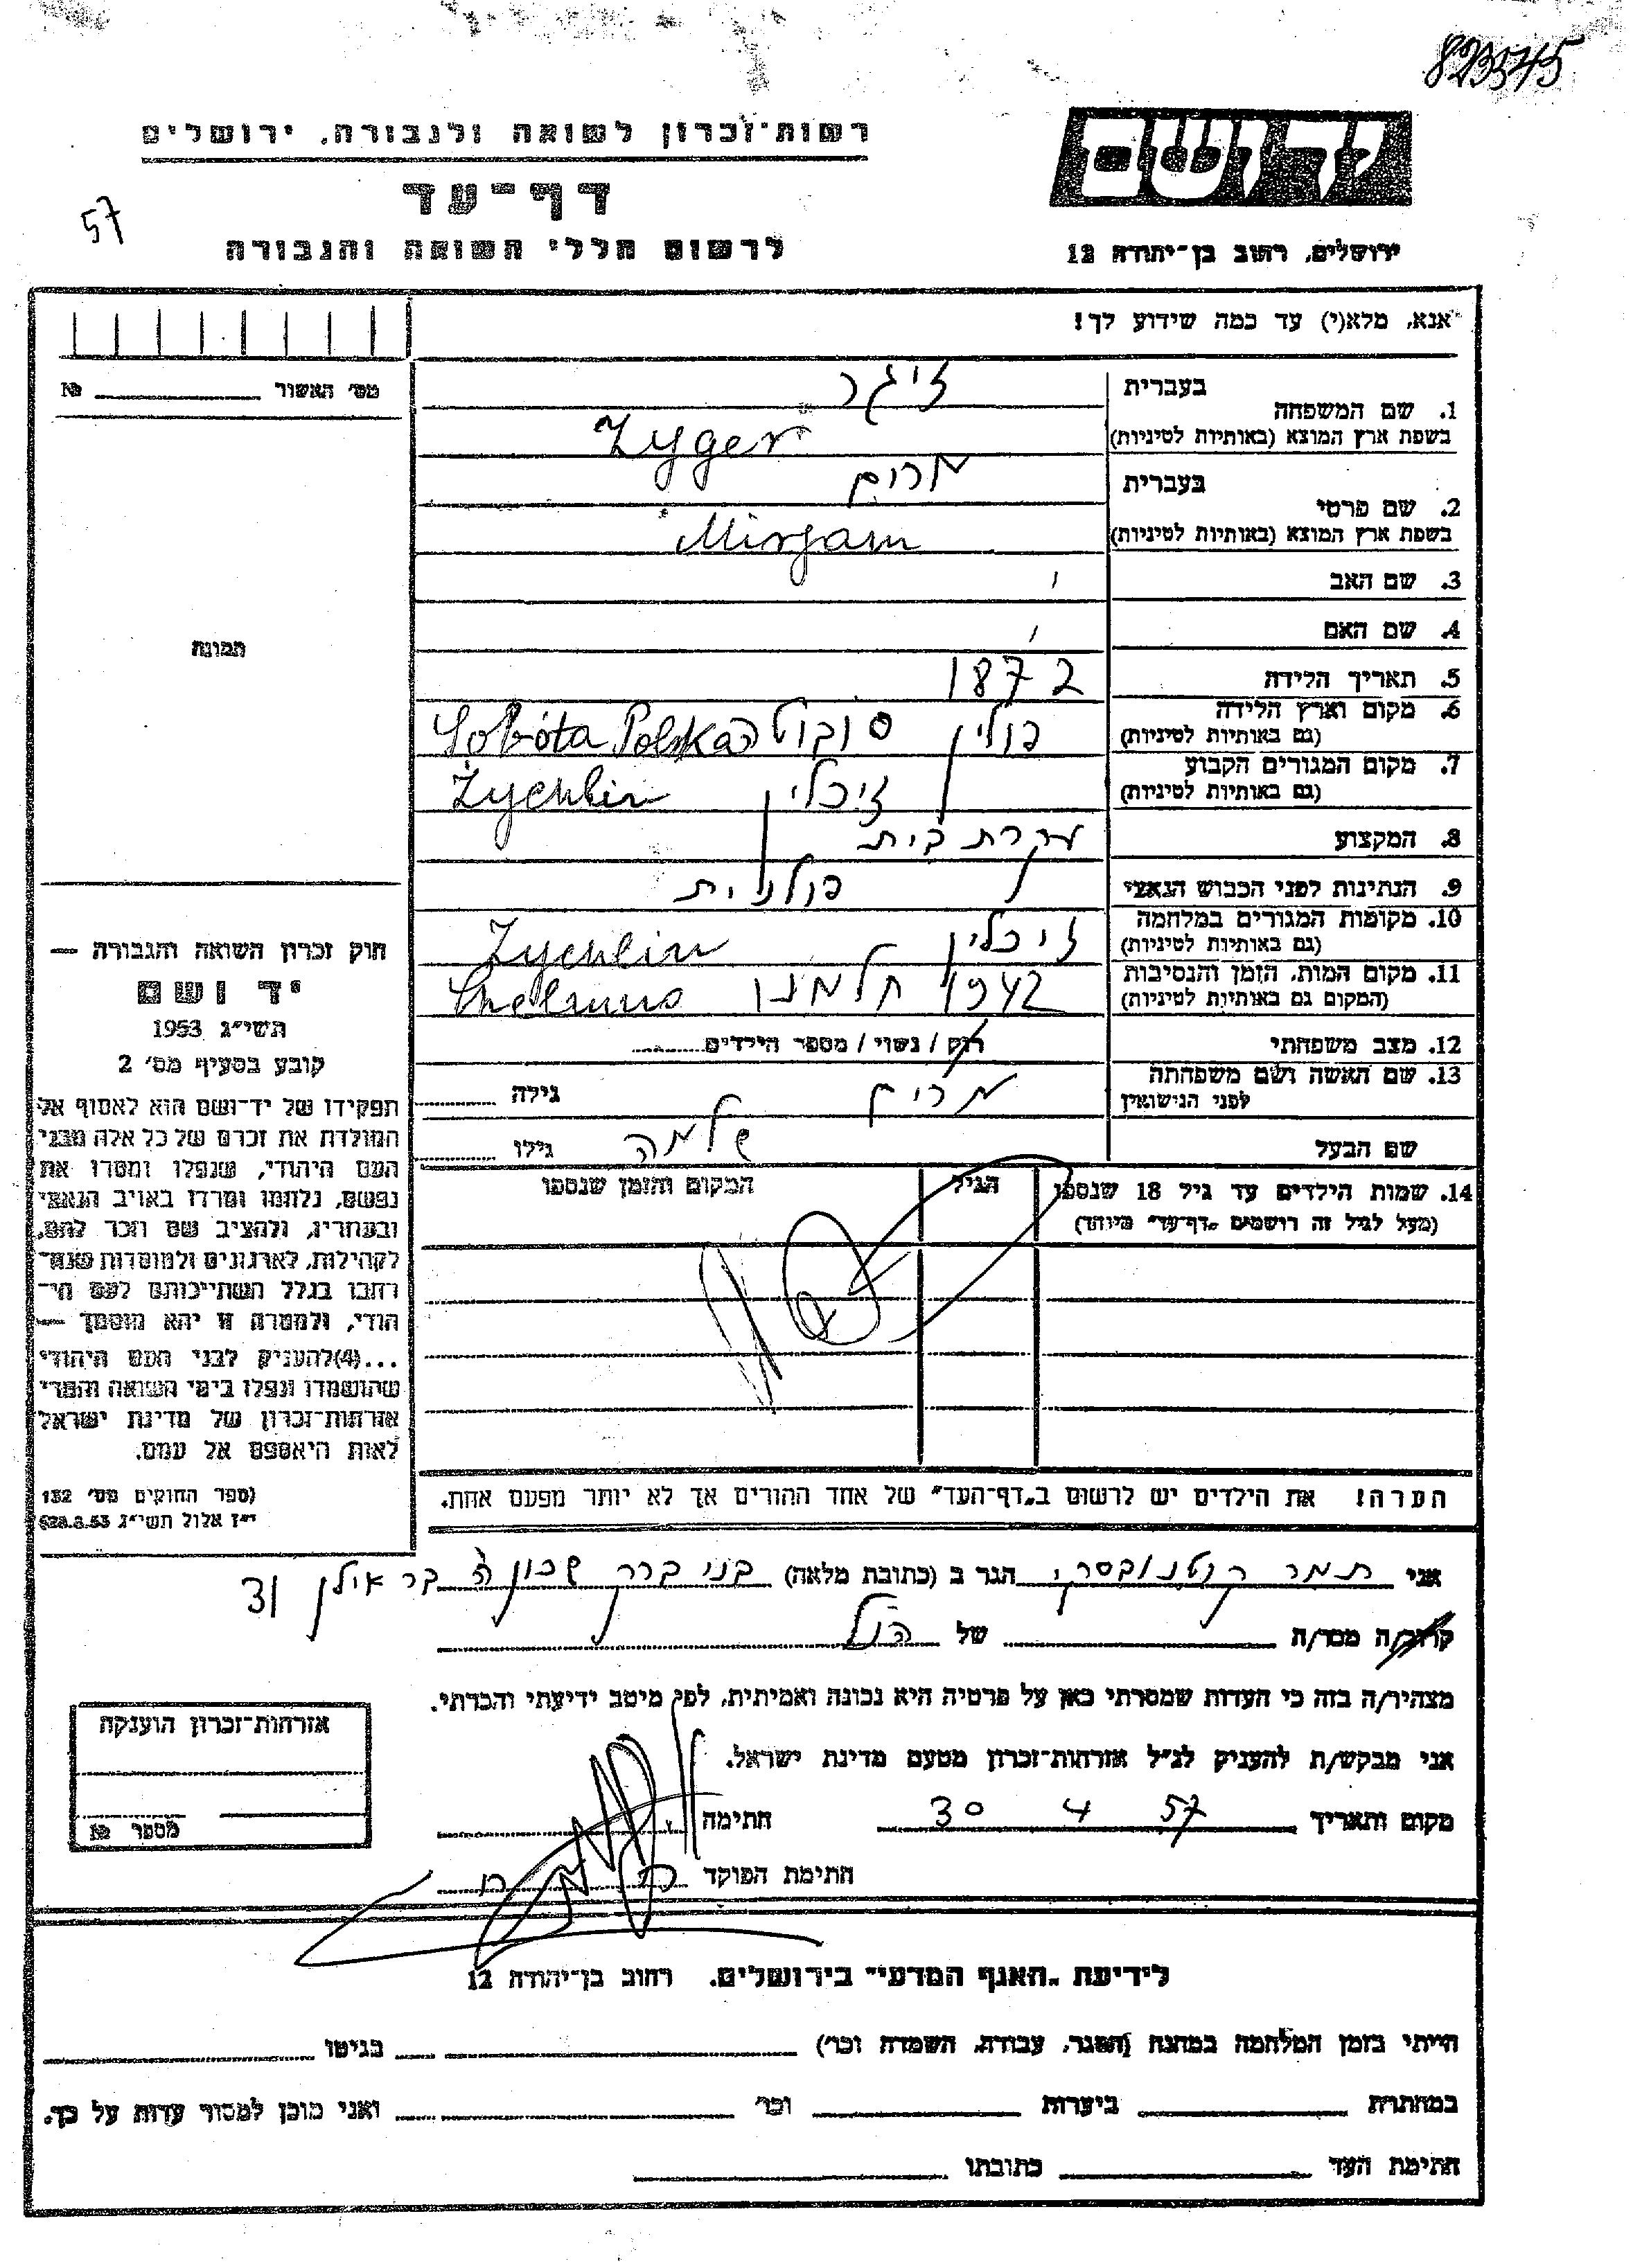 823545
רשות־זכרון לשואה ולגבורה, ירושלים
יד ושם
דף־עד
57
לרשום חללי השואה והגבורה
ירושלים, רחוב בן־יהודה 12
אנא, מלא(י) עד כמה שידוע לך!
מס' האשור №
בעברית זיגר
1. שם המשפחה
בשפת ארץ המוצא (באותיות לטיניות) Zyger
בעברית מרים
2. שם פרטי
בשפת ארץ המוצא (באותיות לטיניות) Mirjam
3. שם האב
4. שם האם
תמונה
5. תאריך הלידה 1872
6. מקום וארץ הלידה פולין סובוטה Sobóta Polska
(גם באותיות לטיניות)
7. מקום המגורים הקבוע זיכלין Żychlin
(גם באותיות לטיניות)
8. המקצוע עקרת בית
9. הנתינות לפני הכבוש הנאצי פולנית
10. מקומות המגורים במלחמה זיכלין Zychlin
(גם באותיות לטיניות)
11. מקום המות, הזמן והנסיבות 1942 חלמנו Chelmno
(המקום גם באותיות לטיניות)
12. מצב משפחתי רווק / נשוי / מספר הילדים
13. שם האשה ושם משפחתה מרים גילה
לפני הנישואין
שם הבעל שלמה גילו
14. שמות הילדים עד גיל 18 שנספו הגיל המקום והזמן שנספו
(מעל לגיל זה רושמים "דף־עד" מיוחד)
הערה! את הילדים יש לרשום ב"דף־העד" של אחד ההורים אך לא יותר מפעם אחת.
חוק זכרון השואה והגבורה —
יד ושם
תשי"ג 1953
קובע בסעיף מס' 2
תפקידו של יד־ושם הוא לאסוף אל
המולדת את זכרם של כל אלה מבני
העם היהודי, שנפלו ומסרו את
נפשם, נלחמו ומרדו באויב הנאצי
ובעוזריו, ולהציב שם וזכר להם,
לקהילות, לארגונים ולמוסדות שנח־
רבו בגלל השתייכותם לעם הי־
הודי, ולמטרה זו יהא מוסמך —
...(4) להעניק לבני העם היהודי
שהושמדו ונפלו בימי השואה והמרי
אזרחות־זכרון של מדינת ישראל
לאות היאספם אל עמם.
(ספר החוקים מס' 132
י"ז אלול תשי"ג 28.8.53)
אני תמר קוטנובסקי הגר ב (כתובת מלאה) בני ברק שכון ה בר אילן
קרוב/ה מכר/ה של הנ"ל
מצהיר/ה בזה כי העדות שמסרתי כאן על פרטיה היא נכונה ואמיתית, לפי מיטב ידיעתי והכרתי.
אני מבקש/ת להעניק לנ"ל אזרחות־זכרון מטעם מדינת ישראל.
מקום ותאריך 30 4 57 חתימה
חתימת הפוקד
אזרחות־זכרון הוענקה
מספר №
לידיעת "האגף המדעי" בירושלים, רחוב בן־יהודה 12
הייתי בזמן המלחמה במחנה (הסגר, עבודה, השמדה וכו') בגיטו
במחתרת ביערות וכו' ואני מוכן למסור עדות על כך.
חתימת העד כתובתו